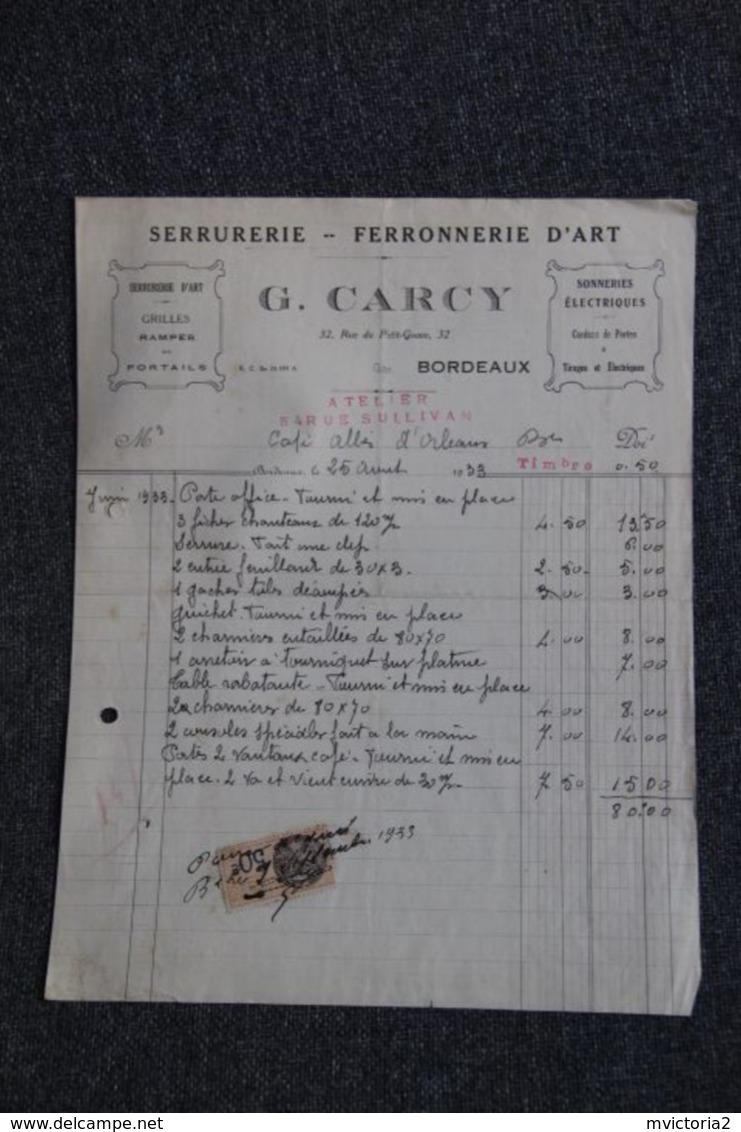 SERRURERIE -- FERRONNERIE D'ART
SERRURERIE D'ART
GRILLES
RAMPES
PORTAILS
G. CARCY
32, Rue du Petit-Goave, 32
BORDEAUX
SONNERIES
ÉLECTRIQUES
Cordons de Portes
à
Tirages et Électriques
ATELIER
54 RUE SULLIVAN
M
Café Allés d'Orléans Doit
Bordeaux, le 25 Aout 1933 Timbre 0.50
Juin 1933. Porte office. Fourni et mis en place
3 fiches chanteaux de 120 4.50 13.50
Serrure. Fait une clef 6.00
2 entrée feuillard de 30x3. 2.50 5.00
1 gaches 3.00 3.00
guichet. Fourni et mis en place
2 charniers entaillées de 80x70 4.00 8.00
1 arretoir a Tourniquet sur platine 7.00
Table rabatante. Fourni et mis en place
2 charnieres de 80x70 4.00 8.00
2 consoles spéciales fait a la main 7.00 14.00
Portes 2 vantaux café. Fourni et mis en
place. 2 va et vient cuivre de 30 7.50 15.00
80.00
50c
1933
mvictoria2